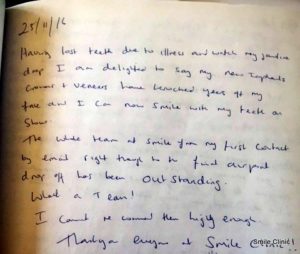 25/11/16
Having lost teeth due to illness and watch my jawline
drop I am delighted to say my new Implants
Crowns + veneers have knocked years off my
face and I can now smile with my teeth on
Show.
The whole team at smile from my first contact
by email right through to the final airport
drop off has been outstanding.
What a Team!
I cannt recommend them highly enough.
Thankyou everyone at Smile Clinic
Smile Clinic